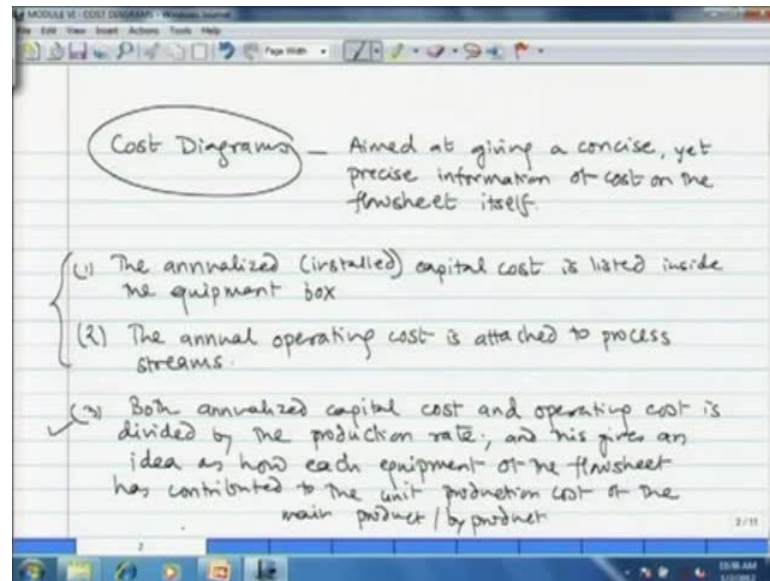 MODULE VI - COST DIAGRAMS - Windows Journal
File Edit View Insert Actions Tools Help
Page Width
Cost Diagrams — Aimed at giving a concise, yet
precise information of cost on the
flowsheet itself.
(1) The annualized (installed) capital cost is listed inside
the equipment box
(2) The annual operating cost is attached to process
streams.
(3) Both annualized capital cost and operating cost is
divided by the production rate, and this gives an
idea as how each equipment of the flowsheet
has contributed to the unit production cost of the
main product / by product
2/11
2